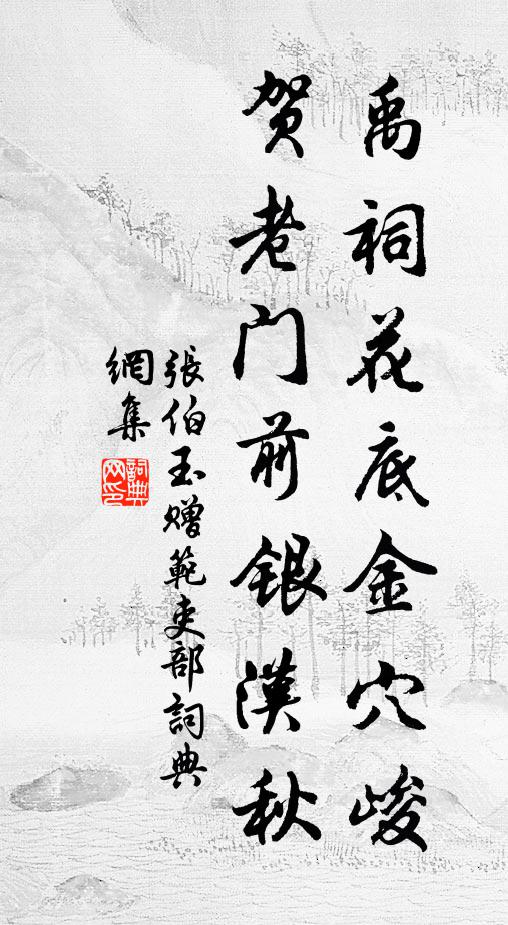 禹祠花底金穴峻
贺老门前银漢秋
張伯玉赠範吏部詞典
網集
詞典
网印